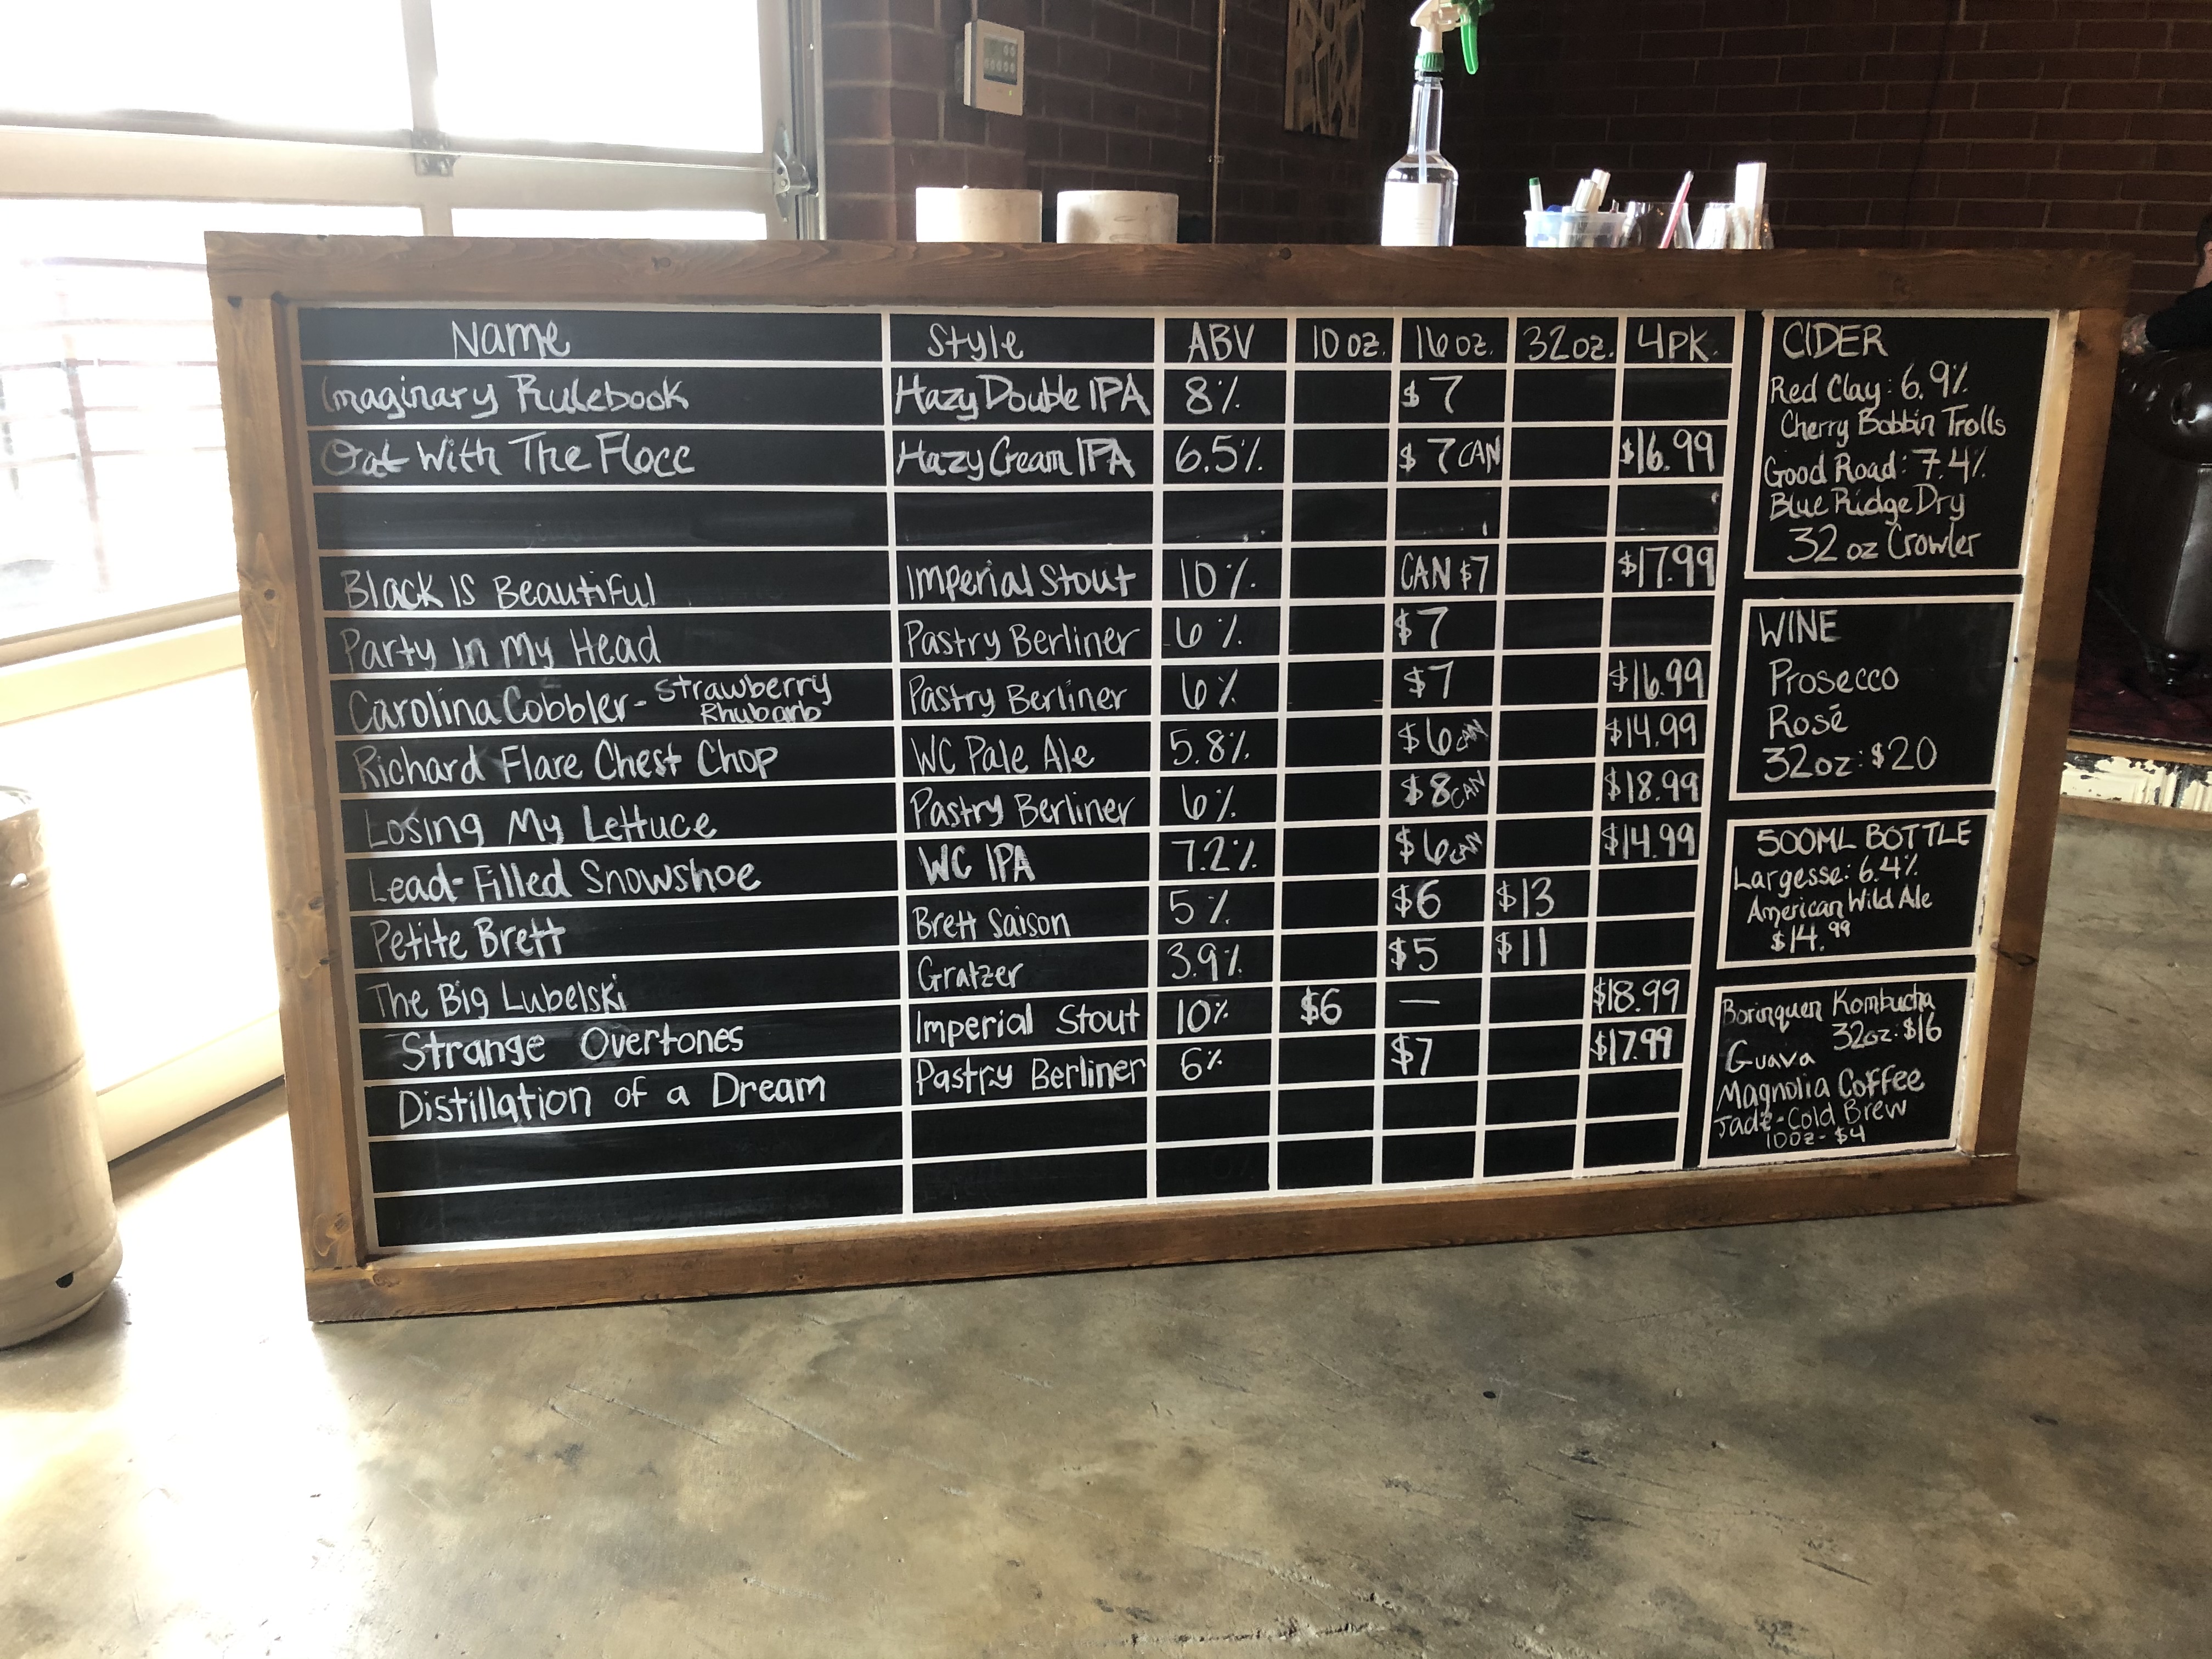 Name Style ABV 10 oz. 16 oz. 32 oz. 4PK.
Imaginary Rulebook Hazy Double IPA 8% $7
Oat With The Flocc Hazy Cream IPA 6.5% $7 CAN $16.99
Black Is Beautiful Imperial Stout 10% CAN $7 $17.99
Party In My Head Pastry Berliner 6% $7
Carolina Cobbler - Strawberry Rhubarb Pastry Berliner 6% $7 $16.99
Richard Flare Chest Chop WC Pale Ale 5.8% $6 CAN $14.99
Losing My Lettuce Pastry Berliner 6% $8 CAN $18.99
Lead-Filled Snowshoe WC IPA 7.2% $6 CAN $14.99
Petite Brett Brett Saison 5% $6 $13
The Big Lubelski Gratzer 3.9% $5 $11
Strange Overtones Imperial Stout 10% $6 — $18.99
Distillation of a Dream Pastry Berliner 6% $7 $17.99
CIDER
Red Clay: 6.9%
Cherry Bobbin Trolls
Good Road: 7.4%
Blue Ridge Dry
32 oz Crowler
WINE
Prosecco
Rosé
32oz: $20
500ML BOTTLE
Largesse: 6.4%
American Wild Ale
$14.99
Borinquen Kombucha
32oz: $16
Guava
Magnolia Coffee
Jade-Cold Brew
10oz- $4